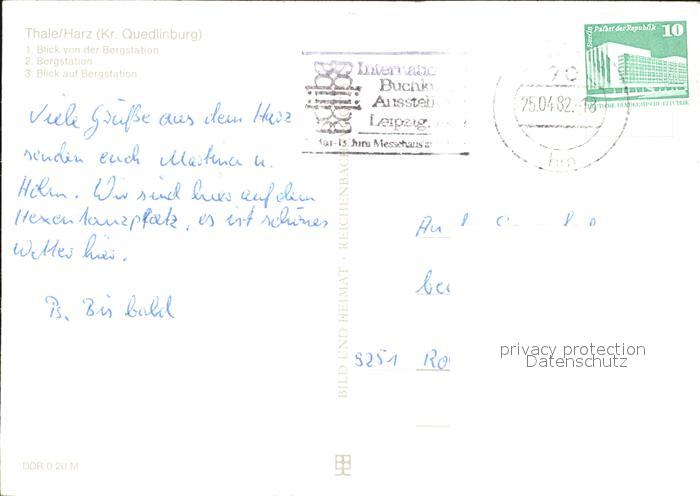 Thale/Harz (Kr. Quedlinburg)
1. Blick von der Bergstation
2. Bergstation
3. Blick auf Bergstation
Viele Grüße aus dem Harz
senden euch Martina u.
Wir sind hier auf dem
Hexentanzplatz, es ist schönes
Wetter hier.
Ps. Bis bald
DDR 0,20 M
BILD UND HEIMAT · REICHENBACH
Internatio
Buchku
Ausstell
Leipzig
-15. Juni Messehaus a
70
25.04.82.-18
Berlin Palast der Republik 10
DEUTSCHE DEMOKRATISCHE REPUBLIK
An
bei
9251 Ro
privacy protection
Datenschutz